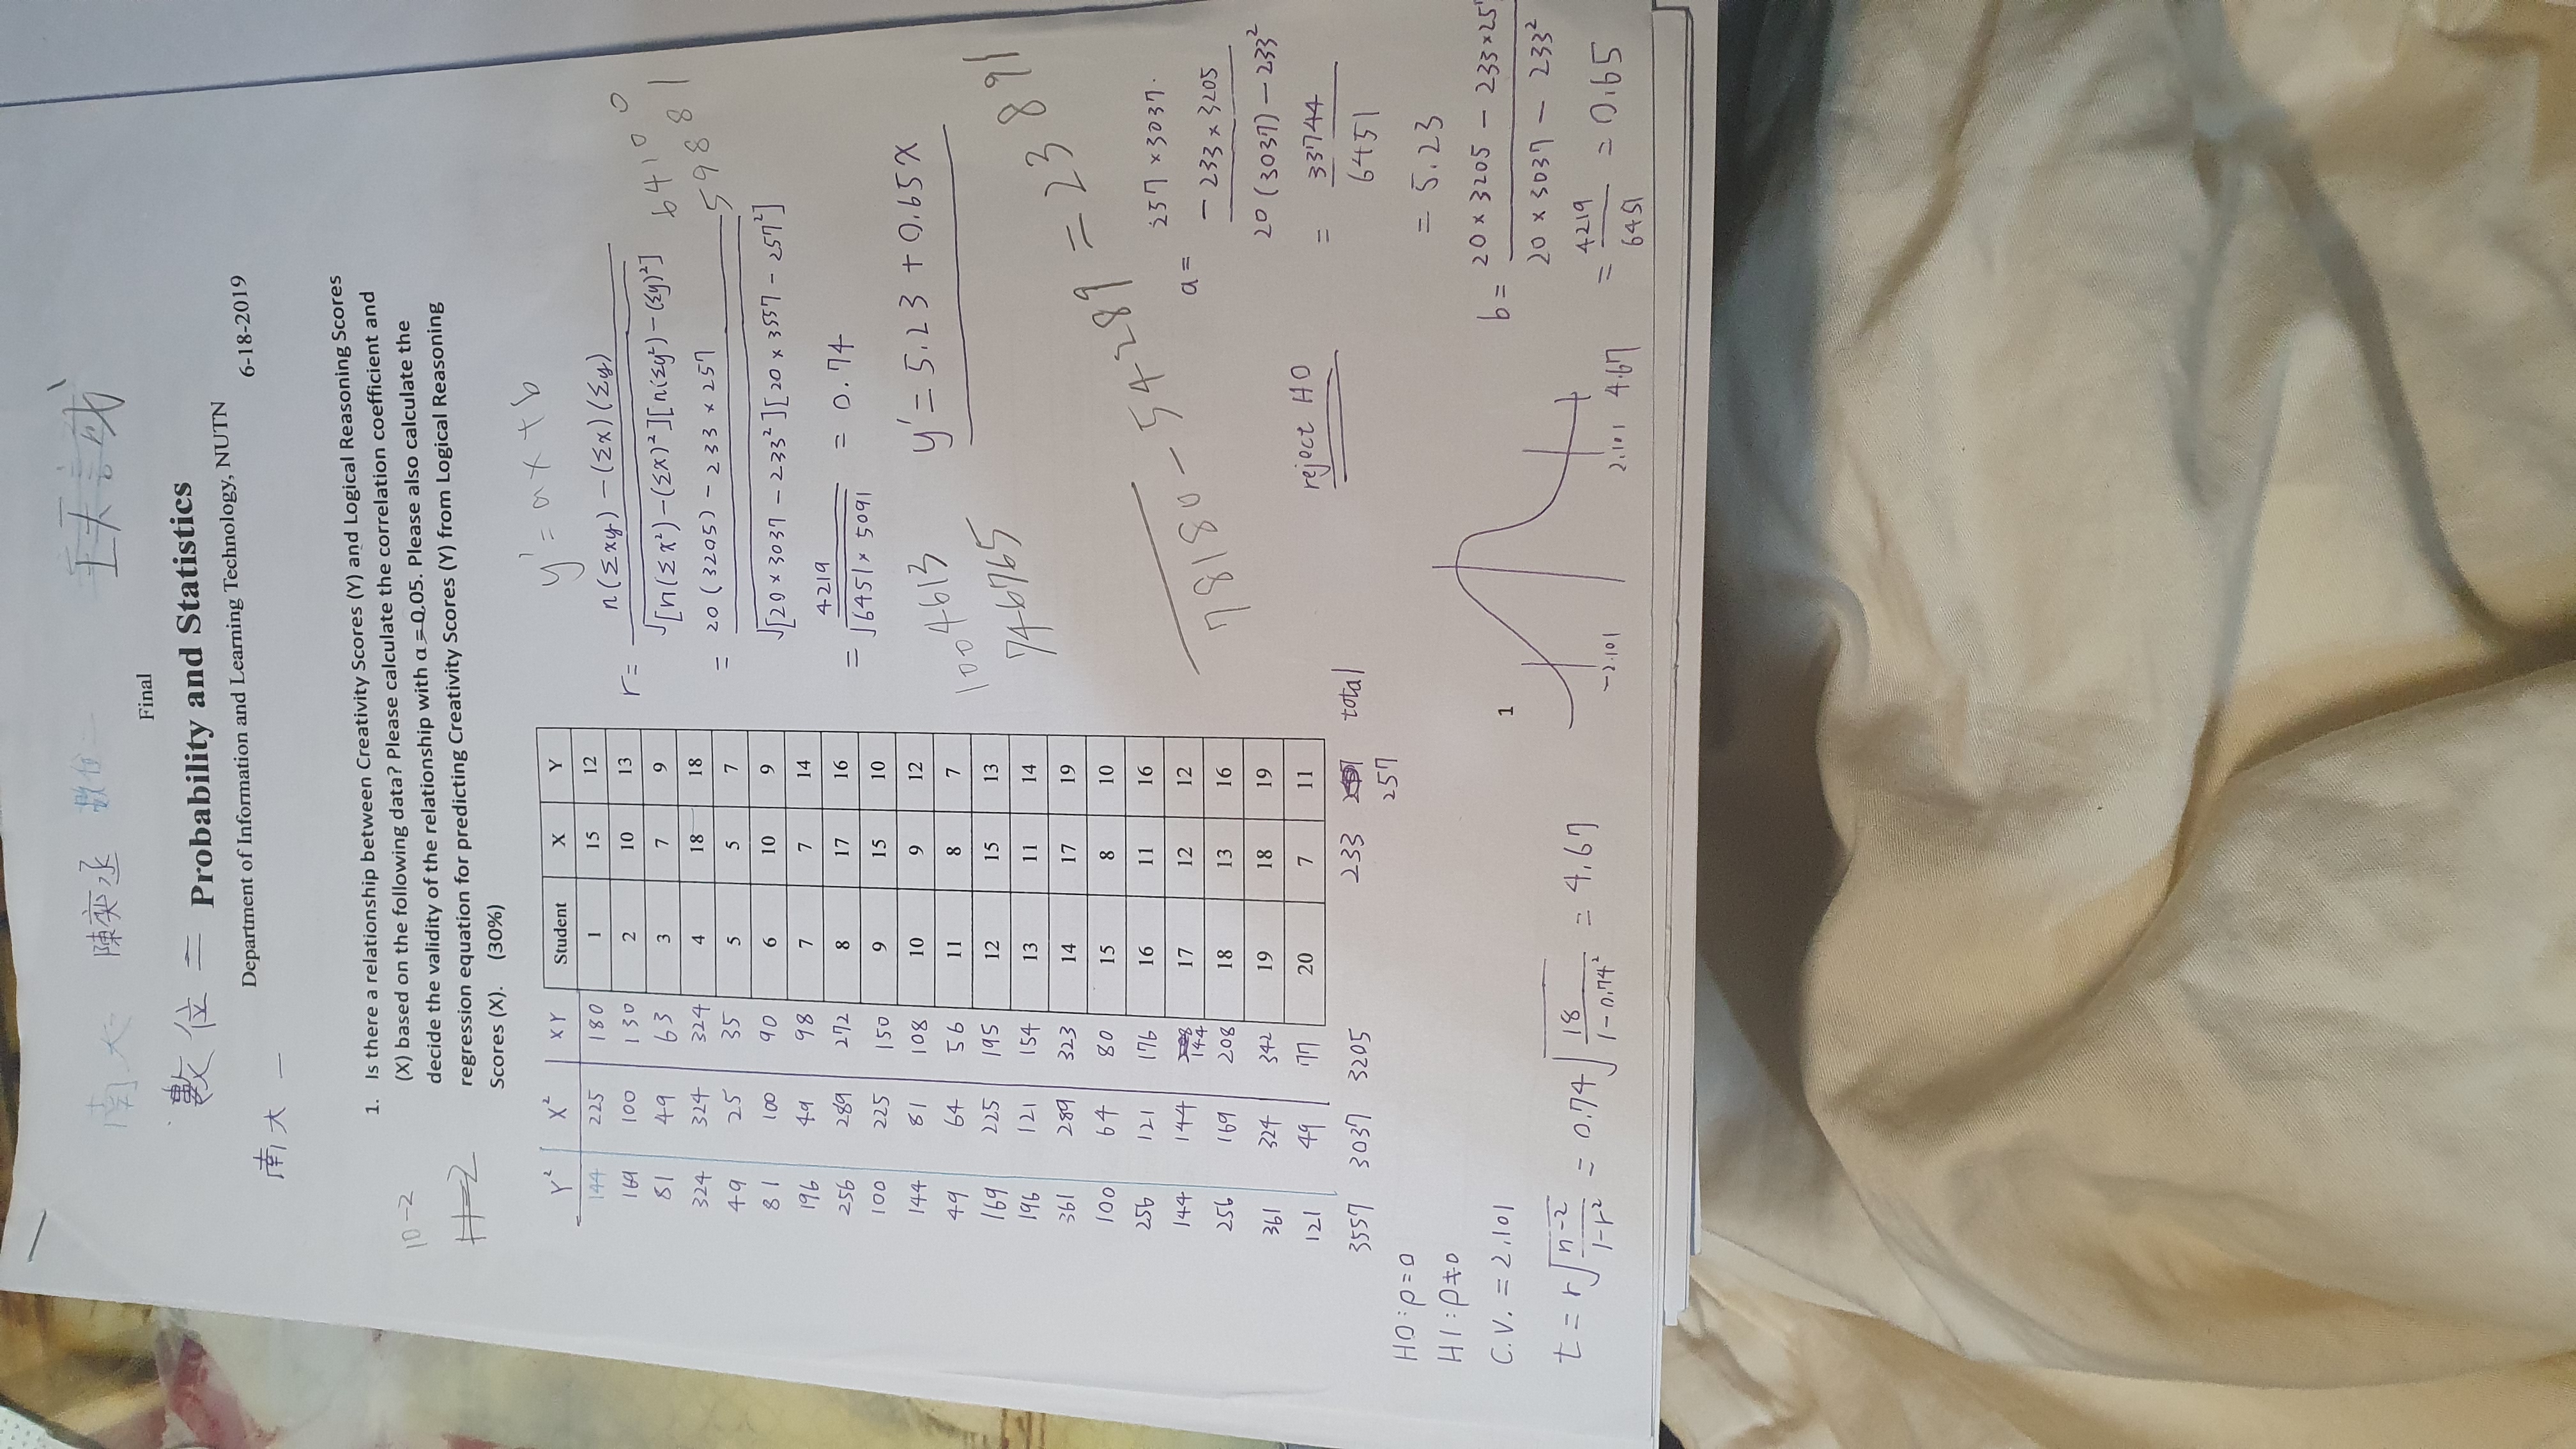 南大 陳奕丞 數位二
Final
數位二 Probability and Statistics
Department of Information and Learning Technology, NUTN
6-18-2019
南大一
1. Is there a relationship between Creativity Scores (Y) and Logical Reasoning Scores
(X) based on the following data? Please calculate the correlation coefficient and
decide the validity of the relationship with α = 0.05. Please also calculate the
regression equation for predicting Creativity Scores (Y) from Logical Reasoning
Scores (X). (30%)
10-2
Y² X² XY Student X Y
144 225 180 1 15 12
169 100 130 2 10 13
81 49 63 3 7 9
324 324 324 4 18 18
49 25 35 5 5 7
81 100 90 6 10 9
196 49 98 7 7 14
256 289 272 8 17 16
100 225 150 9 15 10
144 81 108 10 9 12
49 64 56 11 8 7
169 225 195 12 15 13
196 121 154 13 11 14
361 289 323 14 17 19
100 64 80 15 8 10
256 121 176 16 11 16
144 144 144 17 12 12
256 169 208 18 13 16
361 324 342 19 18 19
121 49 77 20 7 11
3557 3037 3205 233 257 total
y' = ax + b
r = n(Σxy) - (Σx)(Σy)
√[n(Σx²) - (Σx)²][n(Σy²) - (Σy)²]
64100
59881
= 20(3205) - 233 × 257
√[20 × 3037 - 233²][20 × 3557 - 257²]
= 4219
√6451 × 5091 = 0.74
y' = 5.23 + 0.65x
1004613
746765
78180 - 54289 = 23891
a = 257 × 3037
- 233 × 3205
20(3037) - 233²
= 33744
6451
= 5.23
reject H0
b = 20 × 3205 - 233 × 25
20 × 3037 - 233²
= 4219
6451 = 0.65
H0: ρ = 0
H1: ρ ≠ 0
C.V. = 2.101
t = r√n-2
1-r² = 0.74√18
1-0.74² = 4.67
-2.101 2.101 4.67
1